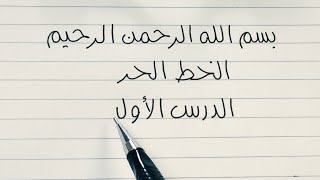 بسم الله الرحمن الرحيم
الخط الحر
الدرس الأول